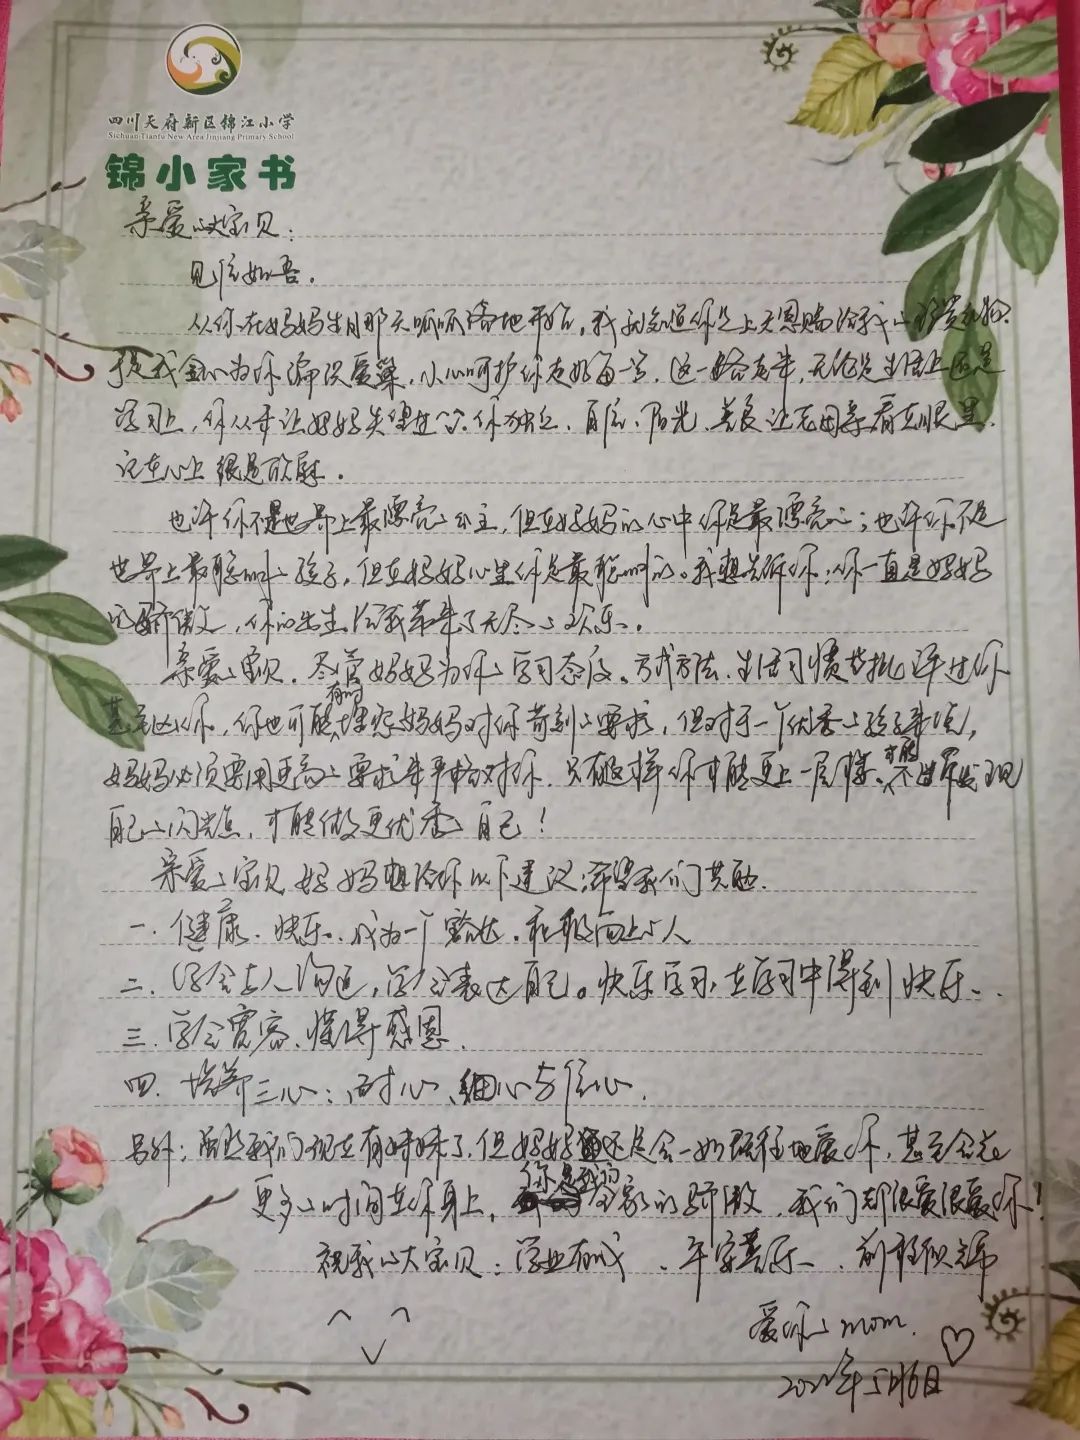 四川天府新区锦江小学
Sichuan Tianfu New Area Jinjiang Primary School
锦小家书
亲爱的宝贝：
见信如吾。
从你在妈妈生日那天呱呱落地开始，我就知道你是上天恩赐给我的珍贵礼物。
于是我全心为你编织爱巢，小心呵护你走好每一步，这一路走来，无论是生活上还是
学习上，你从未让妈妈失望过。你独立、自信、阳光、善良让老母亲看在眼里，
记在心上很是欣慰。
也许你不是世界上最漂亮的公主，但在妈妈的心中你是最漂亮的；也许你不是
世界上最聪明的孩子，但在妈妈心里你是最聪明的。我想告诉你：你一直是妈妈
的骄傲，你的出生给我带来了无尽的欢乐。
亲爱的宝贝，尽管妈妈为你的学习态度、方式方法、生活习惯等批评过你
甚至凶你，你也可能有时埋怨妈妈对你苛刻的要求，但对于一个优秀的孩子来说，
妈妈必须要用更高的要求来严格对你，只有这样你才能更上一层楼、才能不断发现
自己的闪光点，才能做更优秀的自己！
亲爱的宝贝，妈妈想给你以下建议，希望我们共勉.
一. 健康、快乐、成为一个豁达、积极向上的人
二. 学会与人沟通，学会表达自己。快乐学习，在学习中得到快乐.
三. 学会宽容、懂得感恩.
四. 培养三心：耐心、细心与信心.
另外：虽然我们现在有妹妹了，但妈妈还是会一如既往地爱你，甚至会花
更多的时间在你身上，你是我们全家的骄傲，我们都很爱很爱你！
祝我的大宝贝：学业有成、平安喜乐、前程似锦
爱你的mom.
2022年5月6日